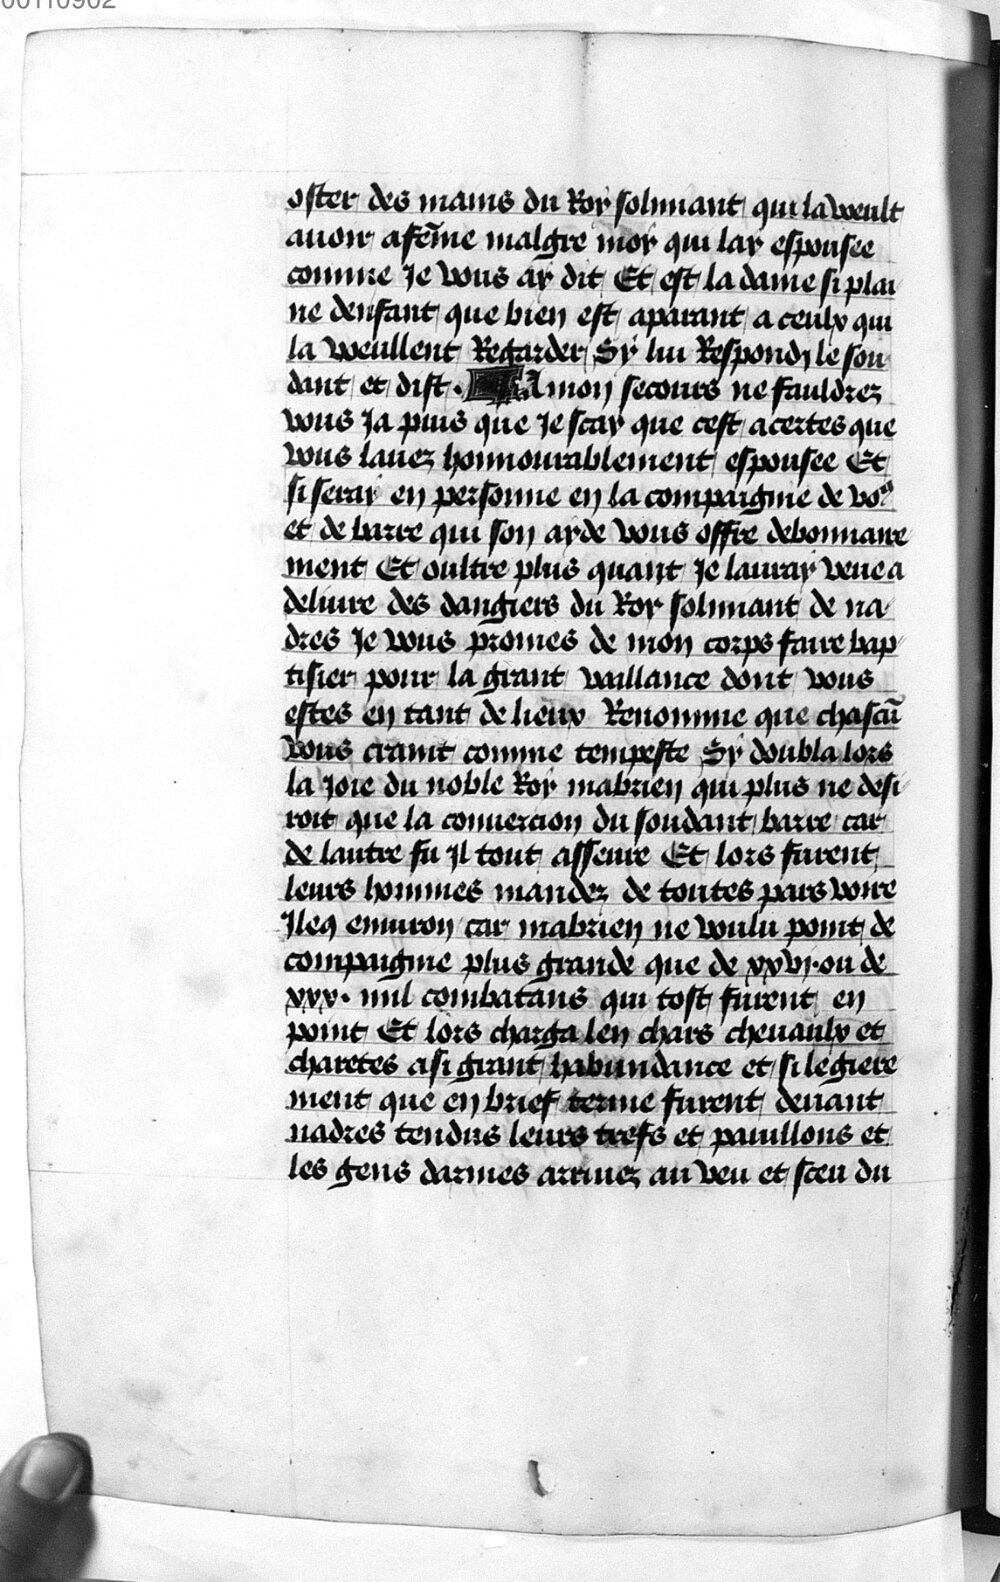 00110902
oster des mains du Roy solimant qui la veult
auoir a fe͞me malgre moy qui lay espousee
comme Je vous ay dit Et est la dame si plai
ne denfant que bien est aparant a ceulx qui
la veullent Regarder Sy lui Respondy le sou
dant et dist . A mon secours ne fauldrez
vous Ja puis que Je scay que cest acertes que
vous lauez honnourablement espousee Et
si seray en personne en la compaignie de vo9
et de barre qui son ayde vous offre debonnaire
ment Et oultre plus quant Je lauray veue a
deliure des dangiers du Roy solimant de na
dres Je vous promes de mon corps faire bap
tisier pour la grant vaillance dont vous
estes en tant de lieux Renomme que chascu͞
vous craint comme tempeste Sy doubla lors
la Joie du noble Roy mabrien qui plus ne desi
roit que la conuercion du soudant barre car
de lautre fu Jl tout asseure Et lors furent
leurs hommes mandez de toutes pars voire
Jleq enuiron car mabrien ne voulu point de
compaignie plus grande que de xxvj. ou de
xxx. mil combatans qui tost furent en
point Et lors charga len chars cheuaulx et
charetes a si grant habundance et si legiere
ment que en brief terme furent deuant
nadres tendus leurs trefs et pauillons et
les gens darmes arriuez au veu et sceu du